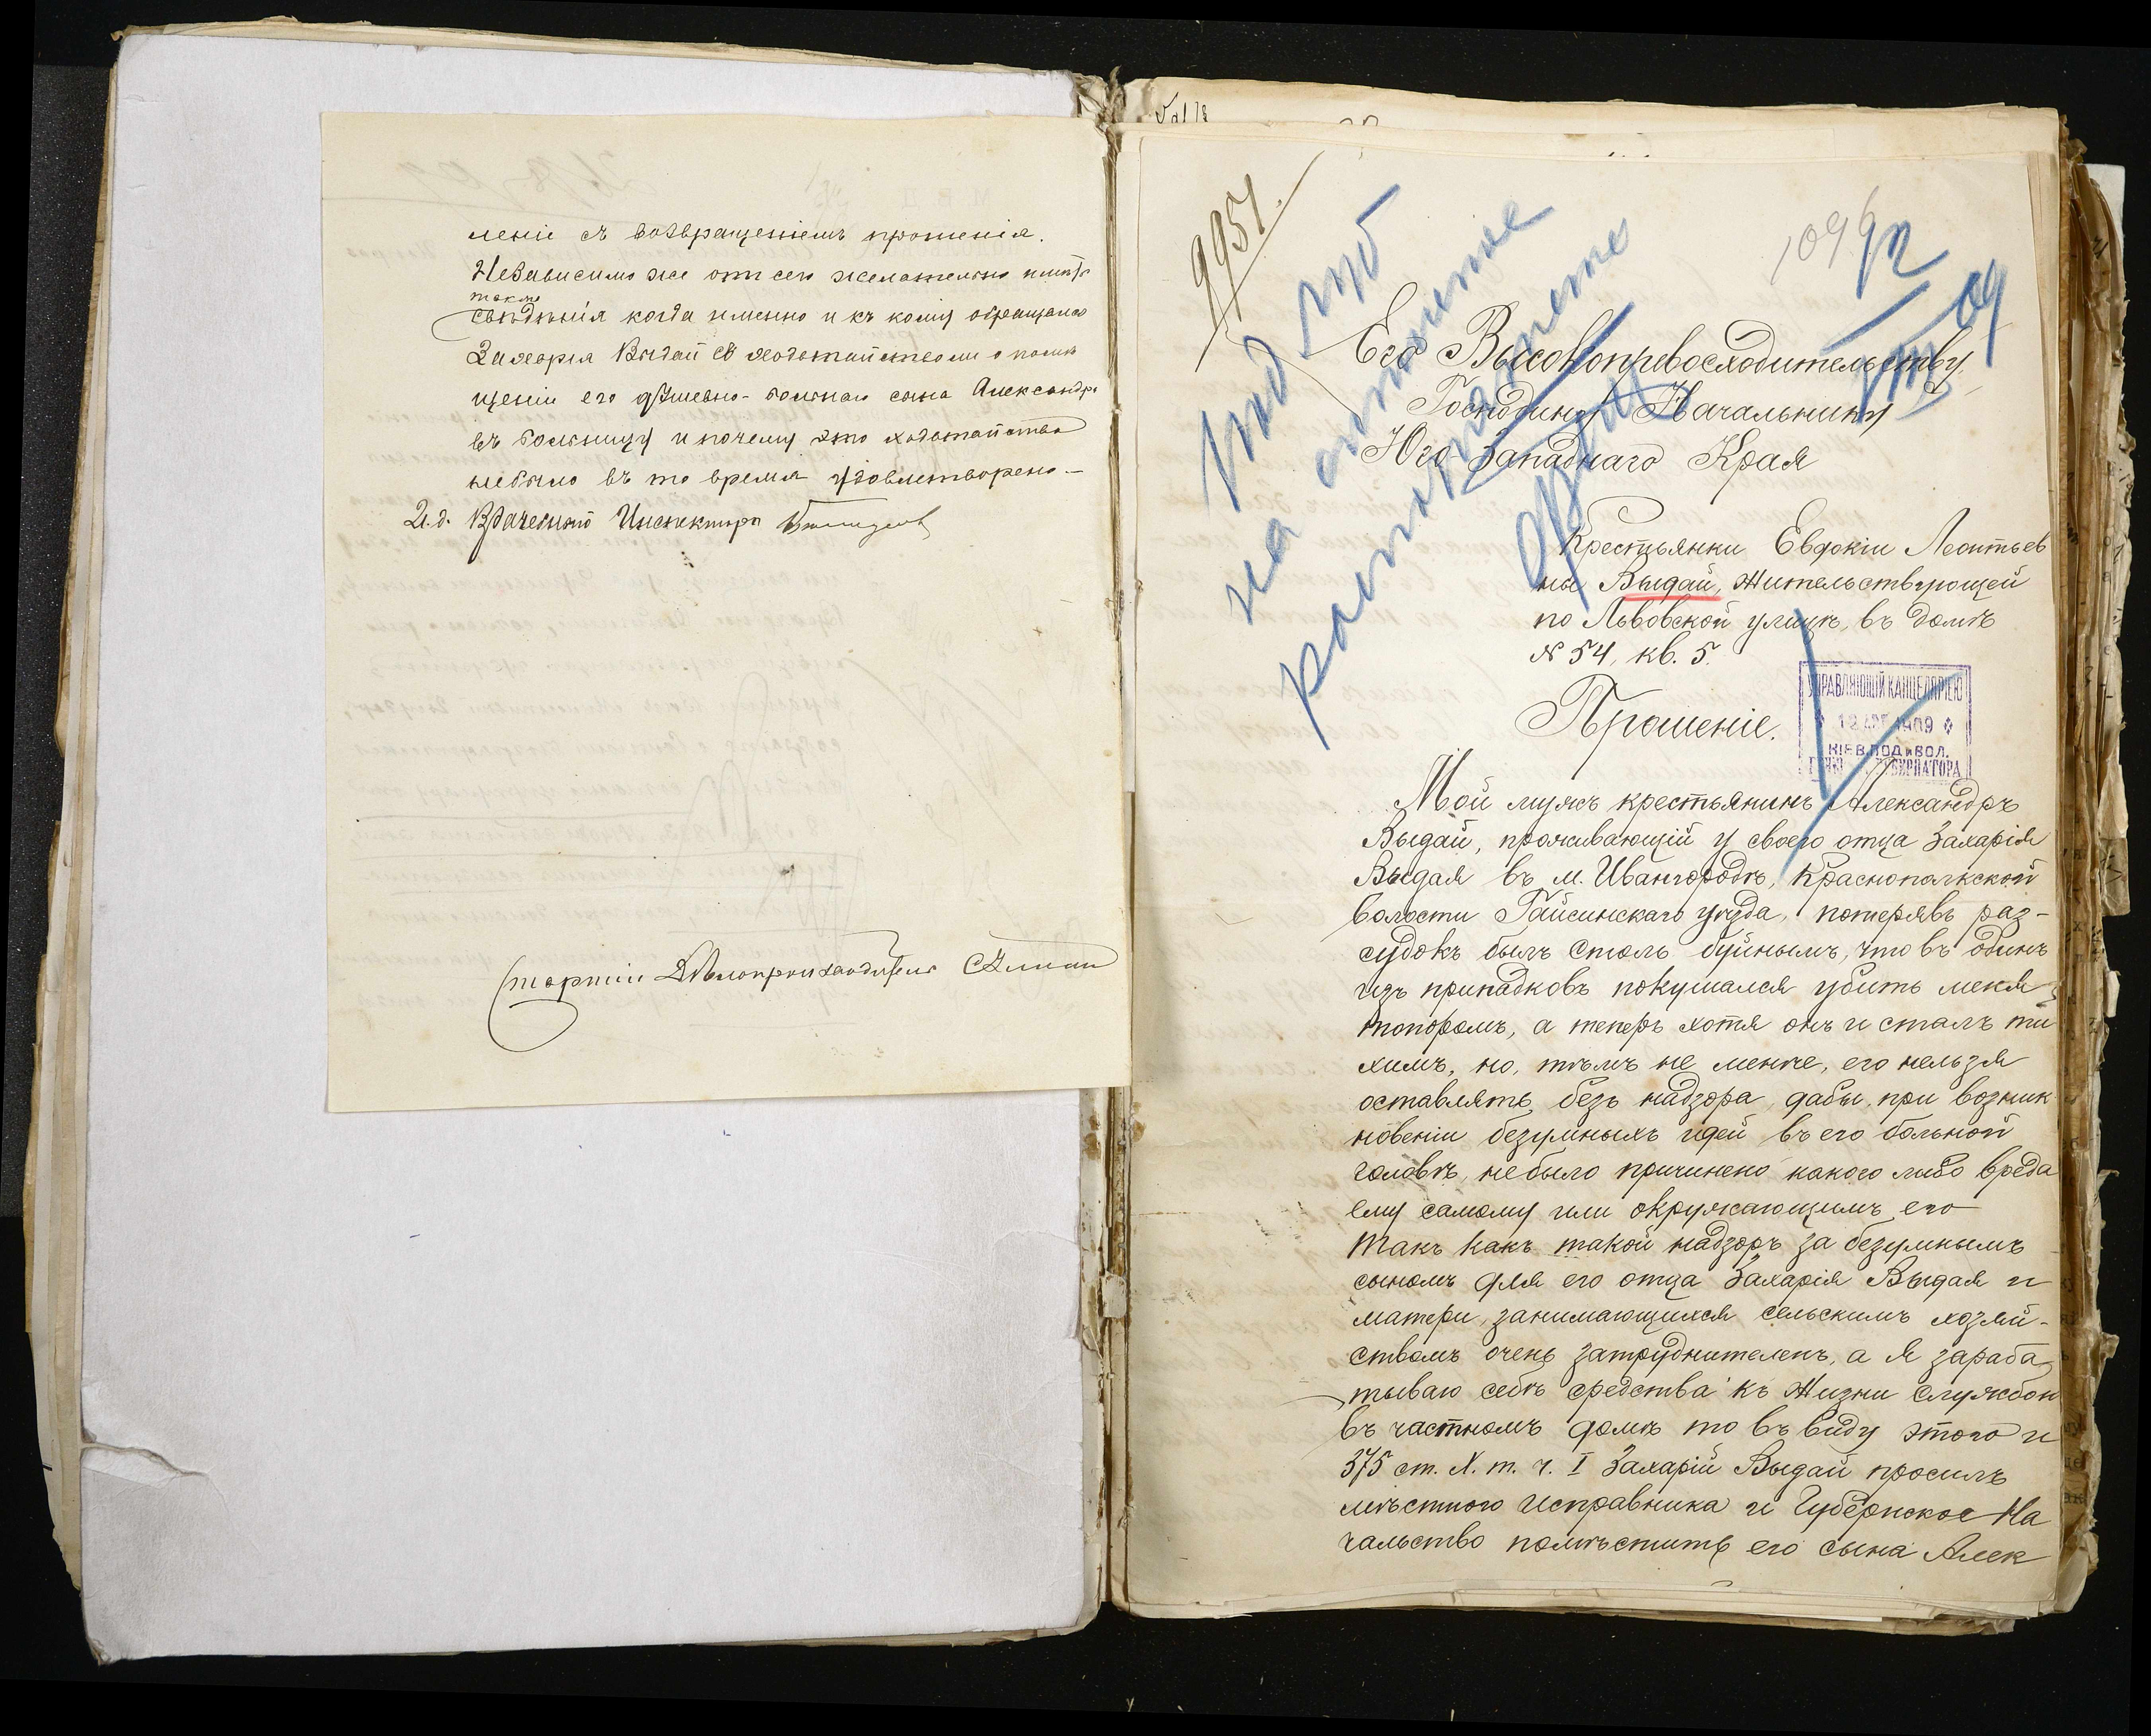 леніи съ возвращеніемъ прошенія.
Независимо же отъ сего желательно имѣть
также
свѣдѣнія когда именно и къ кому обращался
Захарія Выдай съ ходатайствомъ о помѣ
щеніи его душевно-больнаго сына Александра
въ больницу и почему это ходатайство
небыло въ то время удовлетворено.—
И.д. Врачебнаго Инспектора
Старшій Дѣлопроизводитель
9951.
1099
12
VIII 09
на
Его Высокопревосходительству
Господину Начальнику
Юго-Западнаго Края
Крестьянки Евдокіи Леонтьев
ны Выдай, жительствующей
по Львовской улицѣ, въ домѣ
№ 54, кв. 5.
Прошеніе.
УПРАВЛЯЮЩІЙ КАНЦЕЛЯРІЕЮ
12 АВГ 1909
КІЕВ. ПОД. и ВОЛ.
ГУБЕРНАТОРА
Мой мужъ крестьянинъ Александръ
Выдай, проживающій у своего отца Захарія
Выдая въ м. Ивангородѣ, Краснопалкской
волости Гайсинскаго уѣзда, потерявъ раз-
судокъ былъ столь буйнымъ, что въ одинъ
изъ припадковъ покушался убить меня
топоромъ, а теперь хотя онъ и сталъ ти
химъ, но, тѣмъ не менѣе, его нельзя
оставлять безъ надзора, дабы, при возник
новеніи безумныхъ идей въ его больной
головѣ, небыло причинено какого либо вреда
ему самому или окружающимъ его
Такъ какъ такой надзоръ за безумнымъ
сыномъ для его отца Захарія Выдая и
матери, занимающихся сельскимъ хозяй-
ствомъ очень затруднителенъ, а я зараба
тываю себѣ средства къ жизни службой
въ частномъ домѣ то въ виду этого и
375 ст. X. т. ч. I Захарій Выдай просилъ
мѣстного исправника и Губернское На
чальство помѣстить его сына Алек